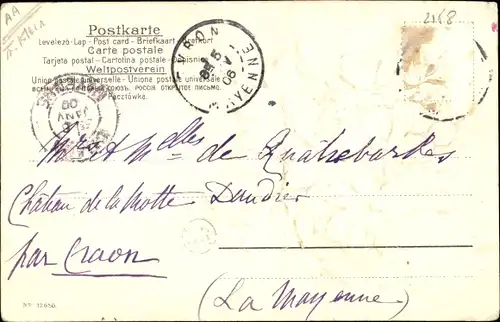 AA
A. Klein
2868
Postkarte
Levelező-Lap - Post card - Briefkaart - Brefkort
Carte postale
Tarjeta postal - Cartolina postale - Dopisnice
Weltpostverein
Union postale universelle - Unione postale universale
РОССIЯ ОТКРЫТОЕ ПИСЬМО.
Pocztówka.
CRAON
5
06
MAYENNE
JANV
06
Mme et Melles de Quatrebarbes
Château de la Motte Daudier
par Craon
(La Mayenne)
No. 12650.